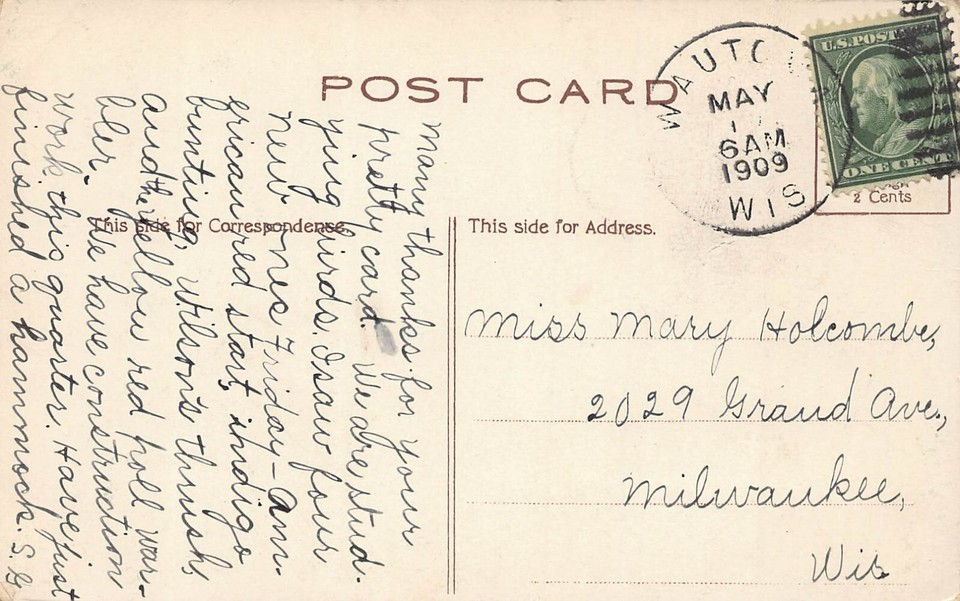 POST CARD
This side for Correspondence.
This side for Address.
U.S. POST
ONE CENT
2 Cents
MAUTO
MAY
1
6AM
1909
WIS
Many thanks for your
pretty card. We are stud-
ying birds. I saw four
new ones Friday - Am-
erican red start, indigo
bunting, Wilson's thrush,
and the yellow red poll war-
bler. We have construction
work this quarter. Have just
finished a hammock. S. G
Miss Mary Holcombe,
2029 Grand Ave.,
Milwaukee,
Wis